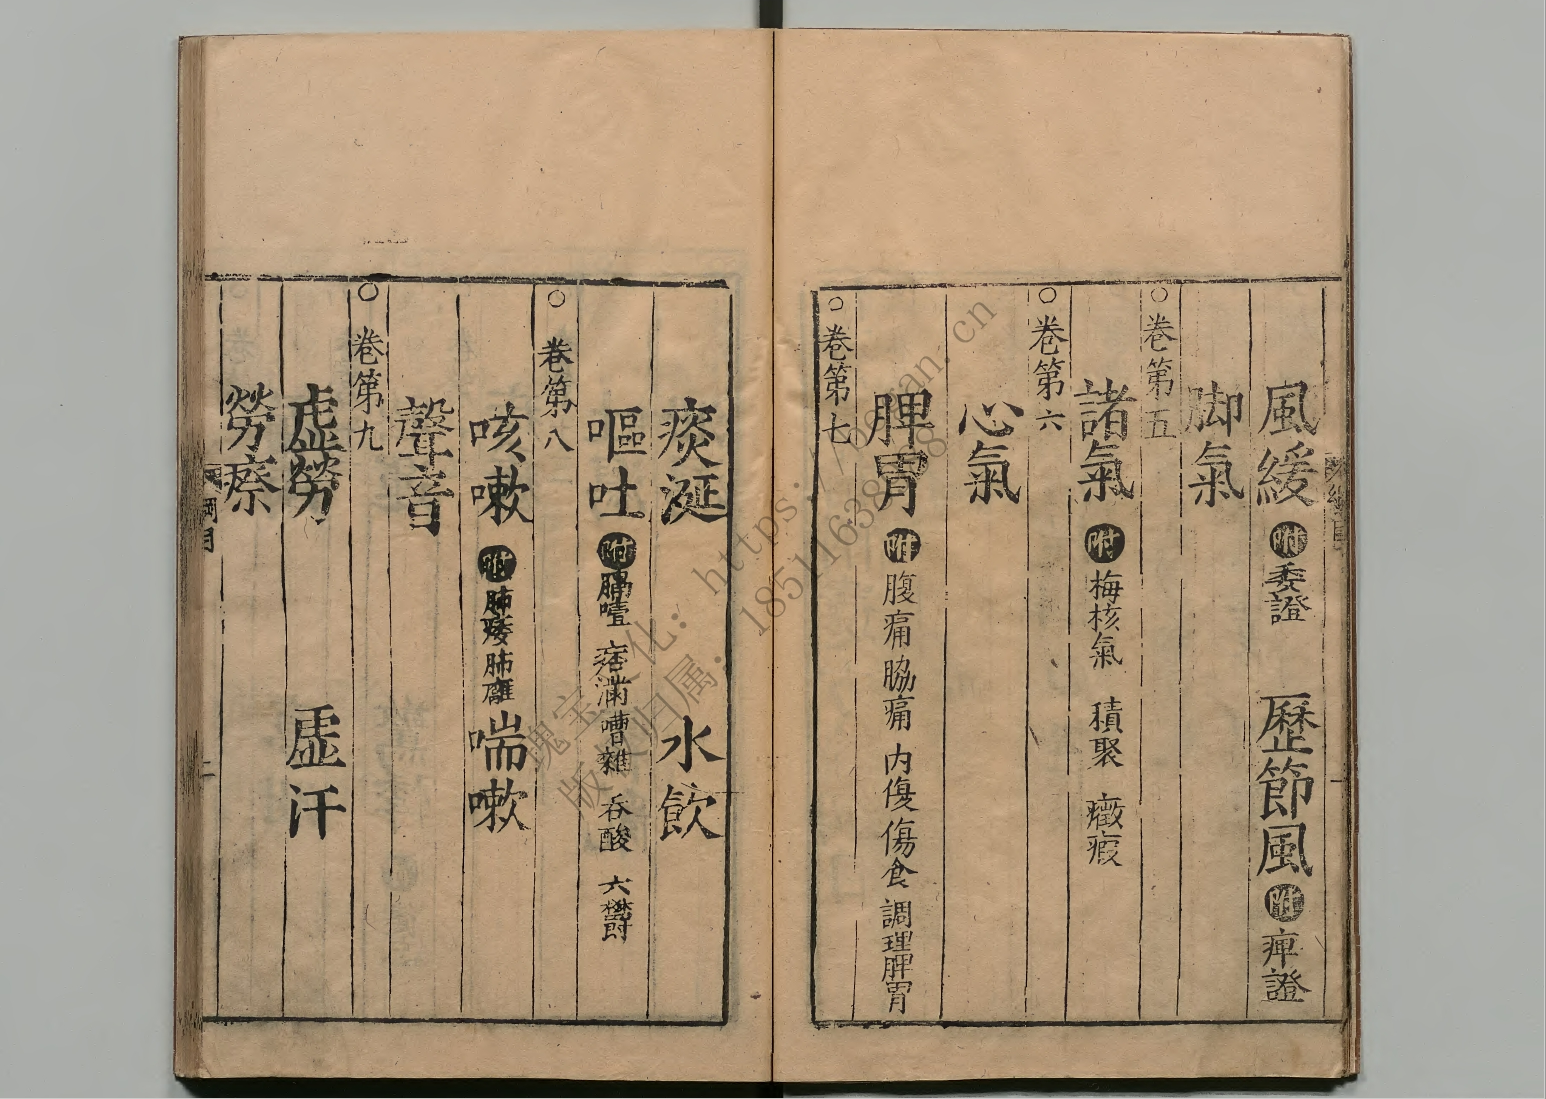 風緩 附 委證 歷節風 附 痺證
脚氣
○卷第五
諸氣 附 梅核氣 積聚 癥瘕
○卷第六
心氣
脾胃 附 腹痛 脇痛 內傷 傷食 調理脾胃
○卷第七
痰涎 水飲
嘔吐 附 膈噎 痞滿 嘈雜 吞酸 六欝
○卷第八
咳嗽 附 肺痿 肺癰 喘嗽
聲音
○卷第九
虛勞 虛汗
勞瘵
綱目
二